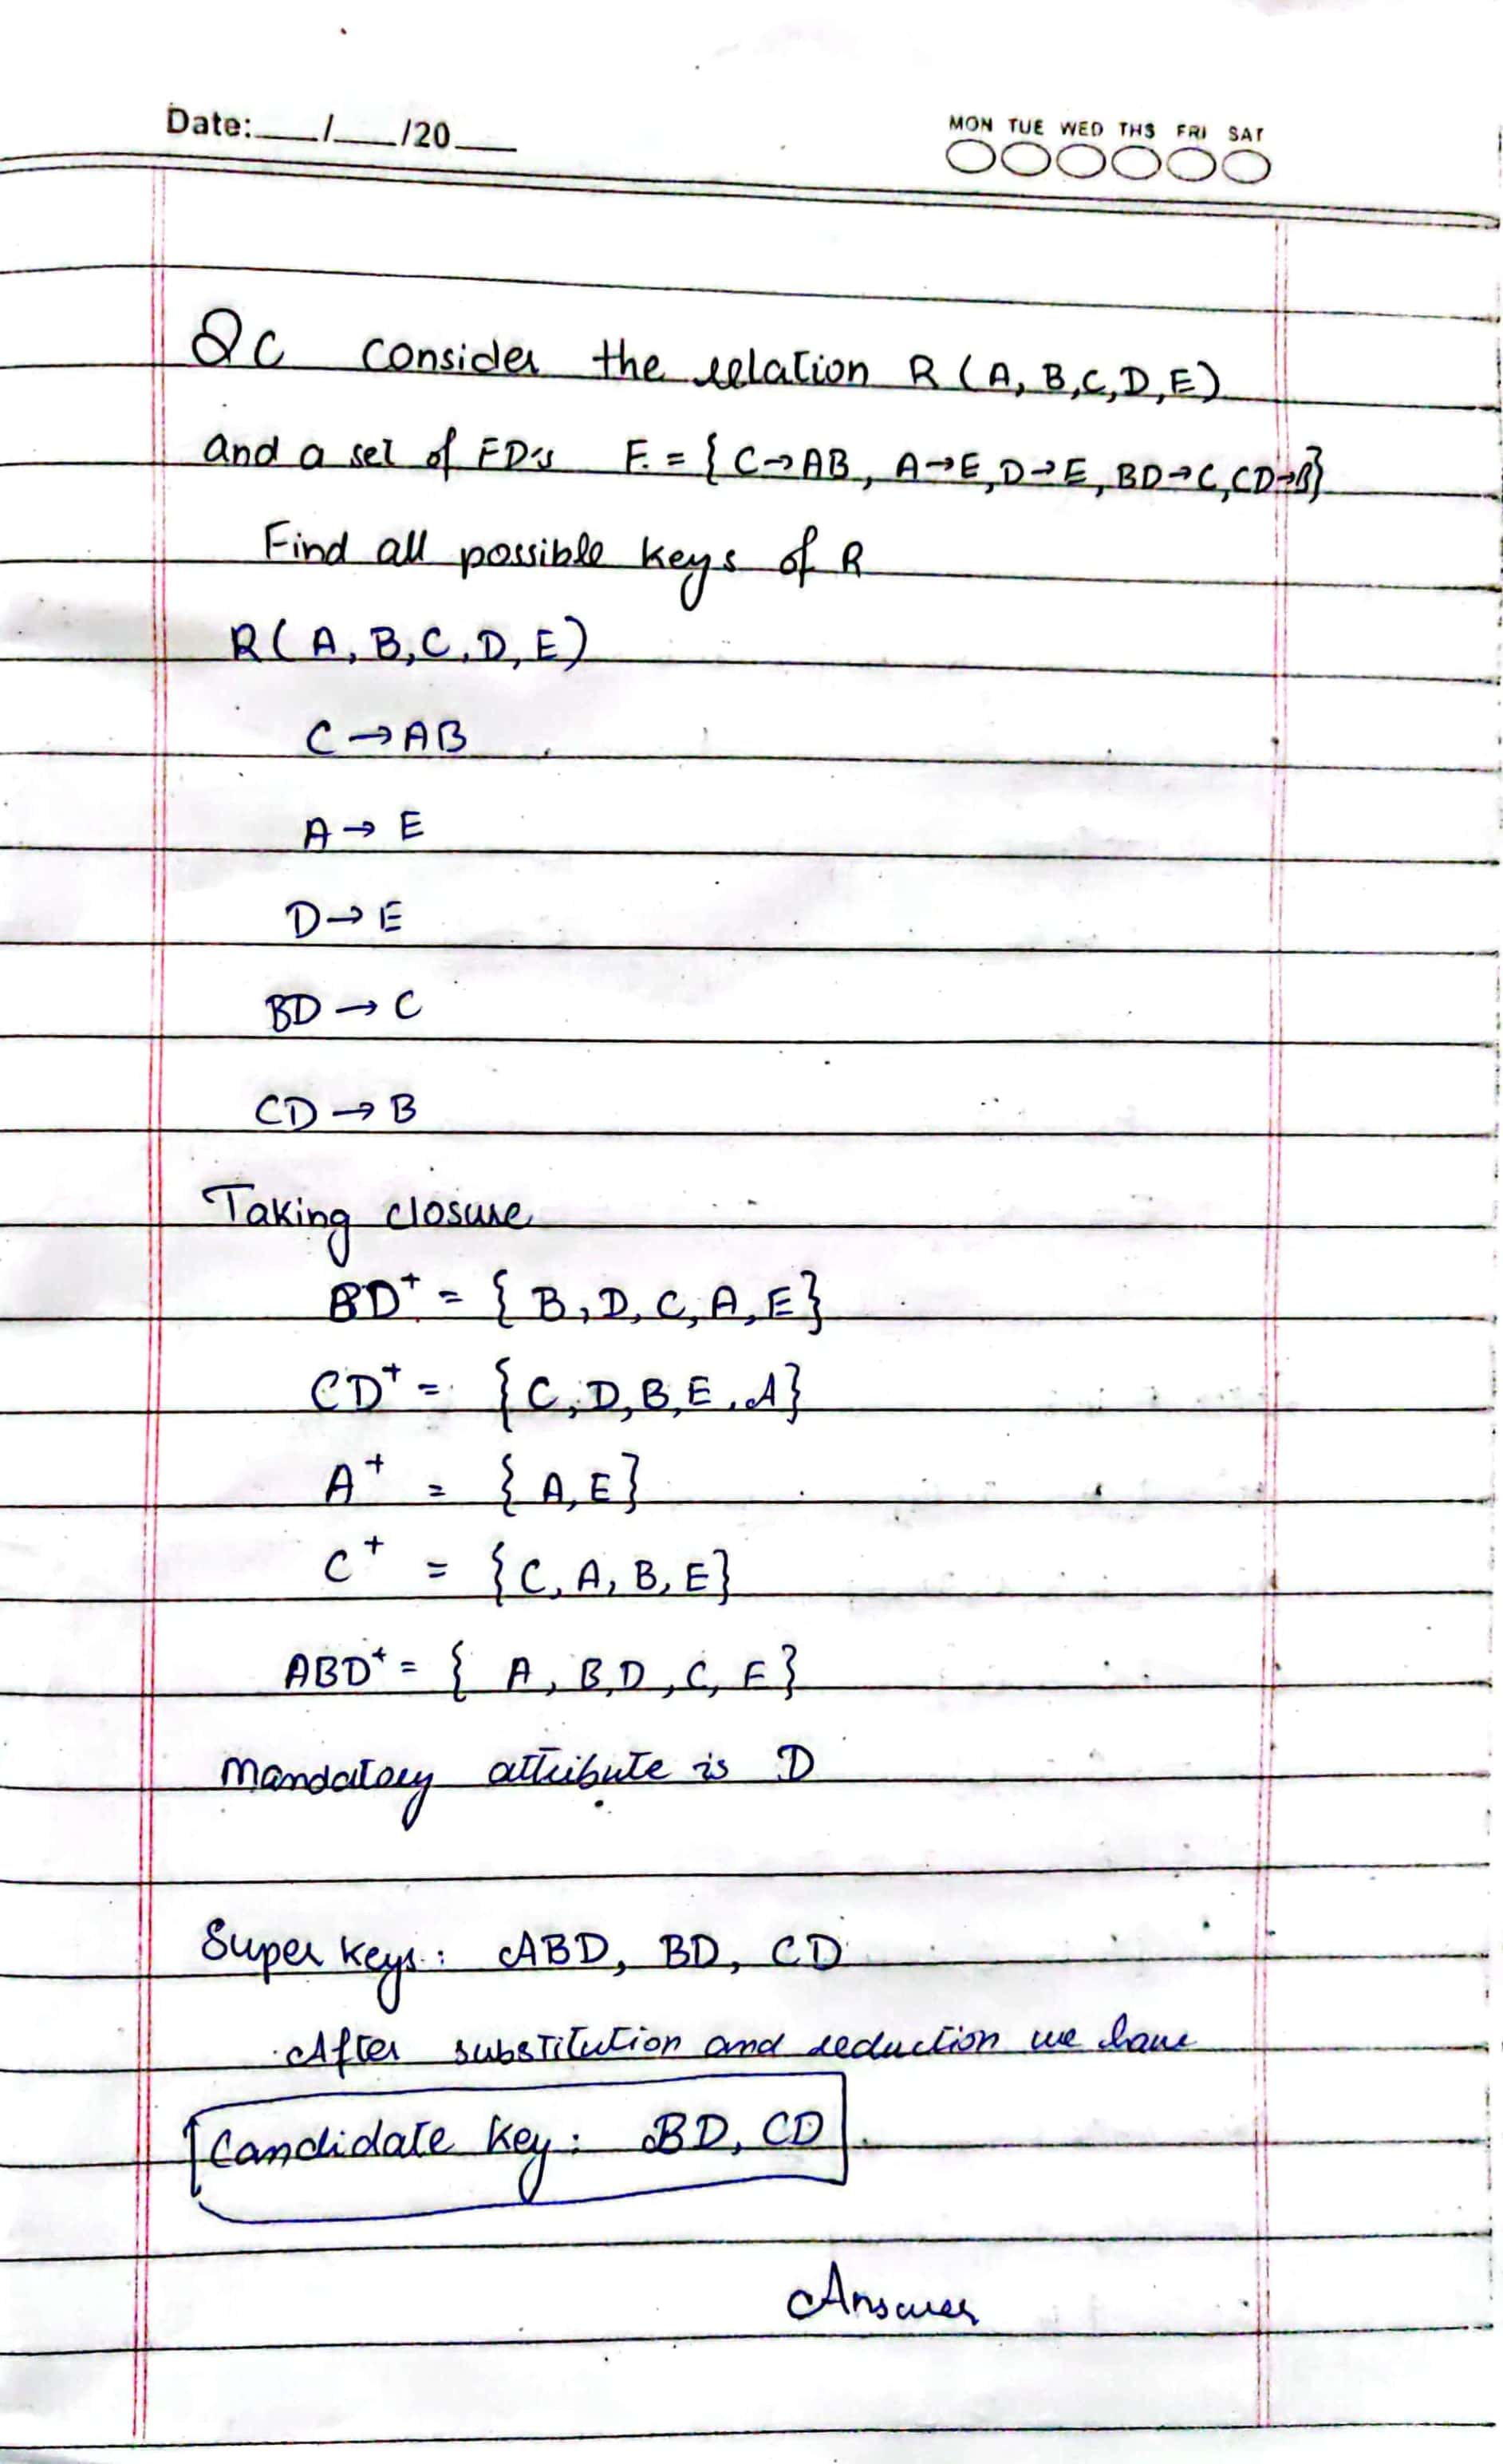 Date:___/___/20___
MON TUE WED THS FRI SAT
Qc consider the relation R (A, B,C,D,E)
and a set of FD's F = { C→AB, A→E, D→E, BD→C, CD→B}
Find all possible keys of R
R( A, B, C, D, E)
C → AB
A → E
D → E
BD → C
CD → B
Taking closure
BD⁺ = { B, D, C, A, E}
CD⁺ = { C, D, B, E, A}
A⁺ = { A, E}
C⁺ = { C, A, B, E}
ABD⁺ = { A, B, D, C, E}
Mandatory attribute is D
Super keys: ABD, BD, CD
After substitution and reduction we have
Candidate key: BD, CD
Answer